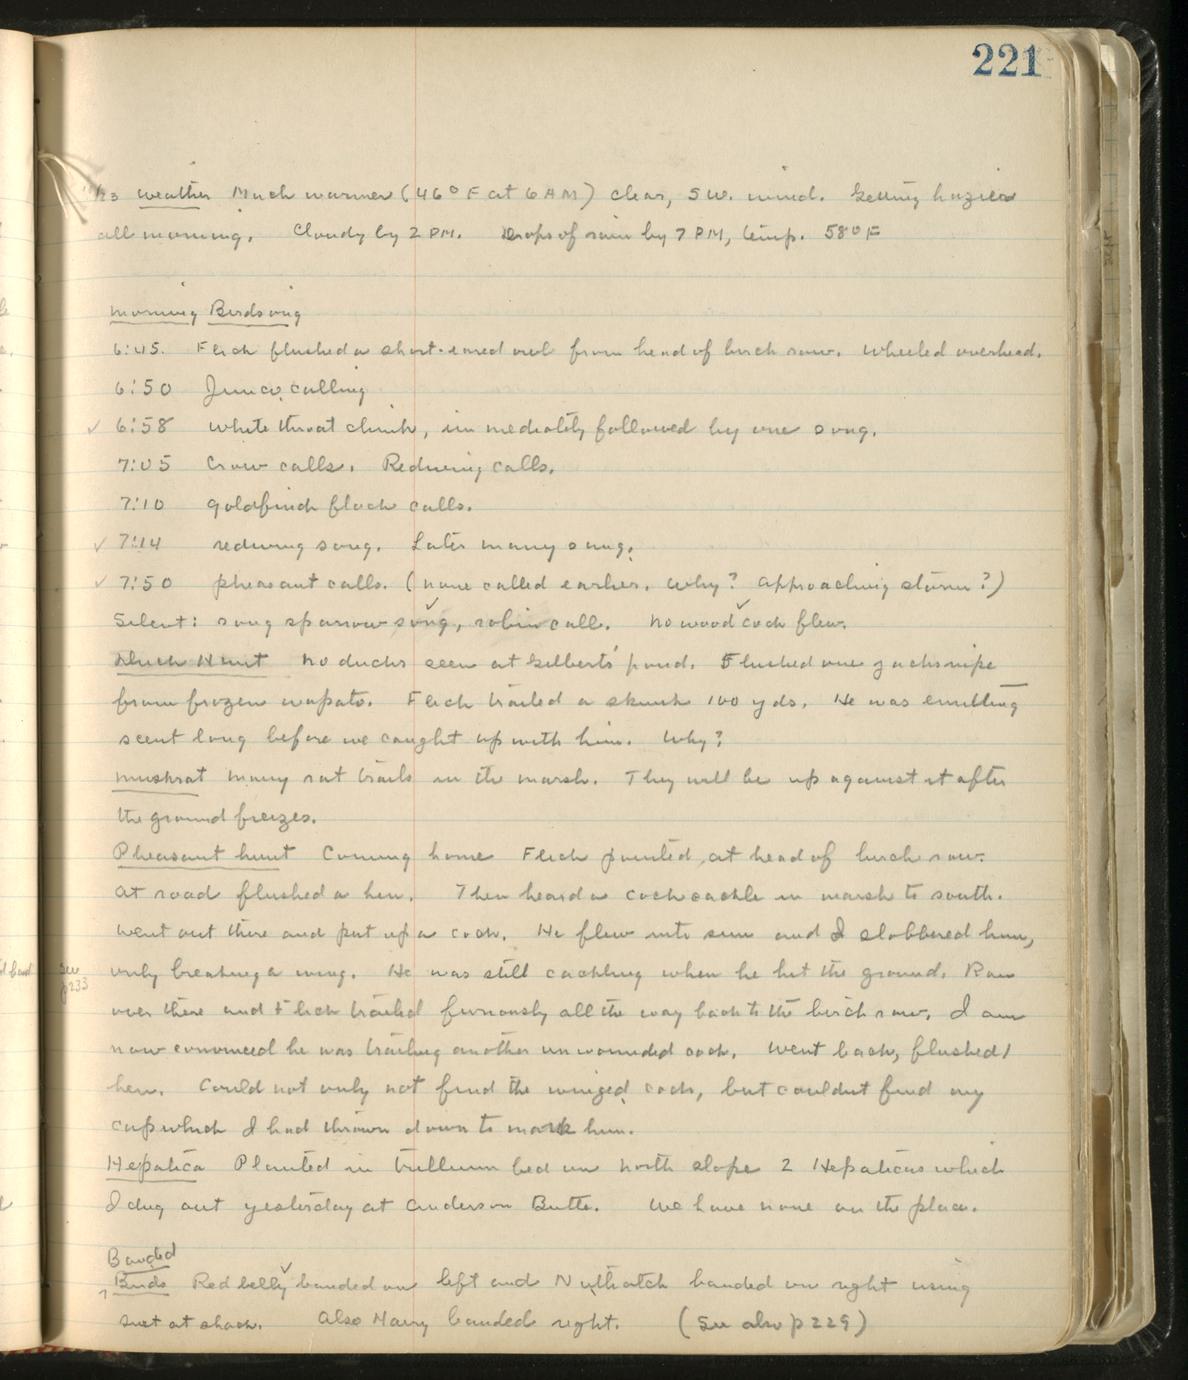 221
11/23 Weather Much warmer (46° F at 6 AM) clear, SW. wind. Getting hazier
all morning. Cloudy by 2 PM. Drops of rain by 7 PM, temp. 58° F
Morning Birdsong
6:45. Flick flushed a short-eared owl from head of birch row. Wheeled overhead.
6:50 Junco calling
✓ 6:58 white throat chink, immediately followed by one song.
7:05 Crow calls. Redwing calls.
7:10 goldfinch flock calls.
✓ 7:14 redwing song. Later many song.
✓ 7:50 pheasant calls. (none called earlier. Why? approaching storm?)
Silent: song sparrow song, robin call. No woodcock flew.
Duck Hunt No ducks seen at Gilberts' pond. Flushed one jacksnipe
from frozen wapato. Flick trailed a skunk 100 yds. He was emitting
scent long before we caught up with him. Why?
Muskrat Many rat trails in the marsh. They will be up against it after
the ground freezes.
Pheasant hunt Coming home Flick pointed at head of birch row.
At road flushed a hen. Then heard a cock cackle in marsh to south.
Went out there and put up a cock. He flew into sun and I slobbered him,
only breaking a wing. He was still cackling when he hit the ground. Ran
see
p233
over there and Flick trailed furiously all the way back to the birch row. I am
now convinced he was trailing another unwounded cock. Went back, flushed 1
hen. Could not only not find the winged cock, but couldnt find my
cap which I had thrown down to mark him.
Hepatica Planted in trillium bed on north slope 2 Hepaticas which
I dug out yesterday at Anderson Butte. We have none on the place.
Banded
Birds Red belly banded on left and Nuthatch banded on right using
suet at shack. Also Hairy banded right. (See also p 229)